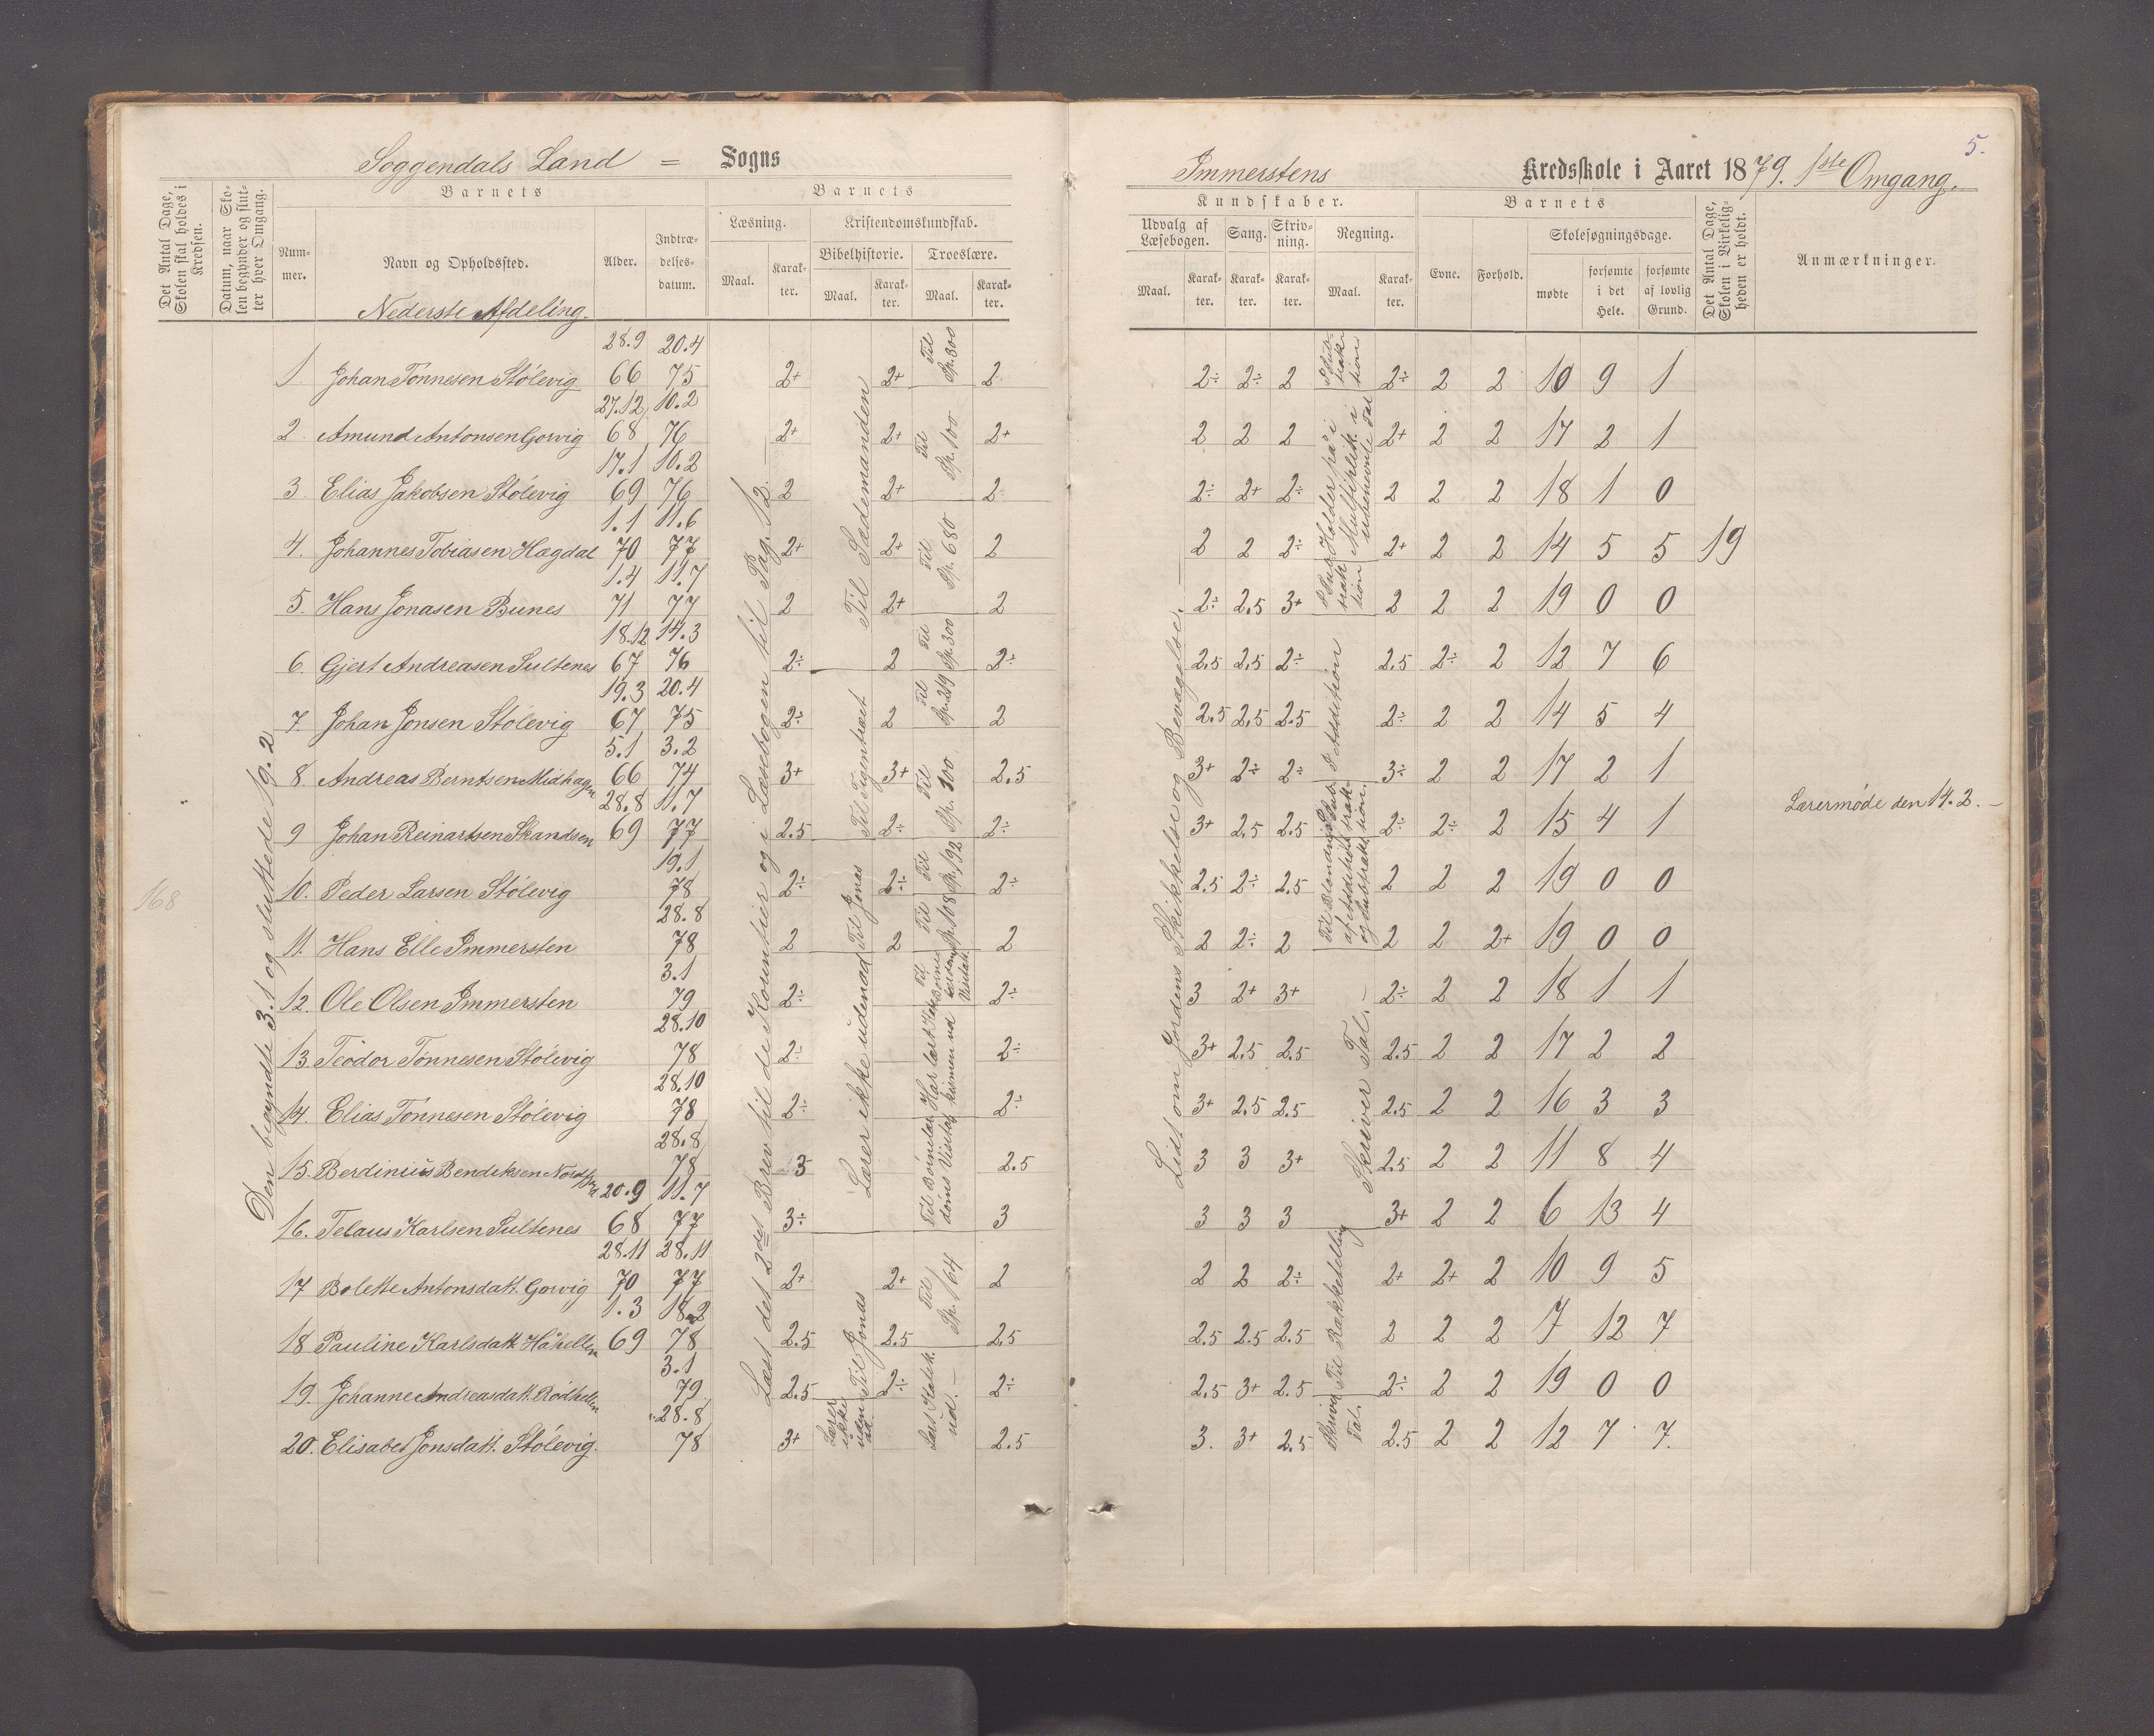 Soggendals Land = Sogns
Immerstens Kredsskole i Aaret 1879. 1ste Omgang.
5.
Det Antal Dage, Skolen skal holdes i Kredsen.
Datum, naar Skolen begynder og slutter hver Omgang.
Barnets
Nummer.
Navn og Opholdssted.
Alder.
Indtrædelsesdatum.
Barnets
Læsning.
Maal.
Karakter.
Kristendomskundskab.
Bibelhistorie.
Maal.
Karakter.
Troeslære.
Maal.
Karakter.
Kundskaber.
Udvalg af Læsebogen.
Maal.
Karakter.
Sang.
Karakter.
Skrivning.
Karakter.
Regning.
Maal.
Karakter.
Barnets
Evne.
Forhold.
Skolesøgningsdage.
mødte
forsømte i det Hele.
forsømte af lovlig Grund.
Det Antal Dage, Skolen i Virkeligheden er holdt.
Anmærkninger.
Nederste Afdeling.
28.9 20.4
1. Johan Tonnesen Stölevig 66 75 2+ 2+ Til Sp. 300 2 2÷ 2÷ 2 2÷ 2 2 10 9 1
27.12 10.2
2 Amund Antonsen Gorvig 68 76 2+ 2+ Til Sp. 100 2+ 2 2 2 2+ 2 2 17 2 1
17.1 10.2
3 Elias Jakobsen Stölevig 69 76 2 2+ 2 2÷ 2+ 2÷ 2 2 2 18 1 0
1.1 11.6
4. Johannes Tobiasen Hægdal 70 77 2+ 2+ Til Sp. 680 2 2 2 2÷ 2+ 2 2 14 5 5 19
1.4 11.7
5. Hans Jonasen Bunes 71 77 2 2+ 2 2÷ 2,5 3+ 2 2 2 19 0 0
18.12 14.3
6. Gjert Andreasen Sultenes 67 76 2÷ 2 Til Sp. 300 2÷ 2,5 2,5 2÷ 2.5 2÷ 2 12 7 6
19.3 20.4
7. Johan Jonsen Stölevig 67 75 2÷ 2 Til Sp. 219 2 2.5 2,5 2.5 2÷ 2 2 14 5 4
5.1 3.2
8 Andreas Berntsen Midhagen 66 74 3+ 3+ Til Sp. 300 2.5 3+ 2÷ 2÷ 3÷ 2 2 17 2 1
28.8 11.7
9 Johan Reinartsen Skandsen 69 77 2.5 2÷ Til Sp. 192 2÷ 3+ 2,5 2.5 2÷ 2÷ 2 15 4 1
19.1
10. Peder Larsen Stölevig 78 2÷ 2÷ Til Sp. 108 2÷ 2.5 2÷ 2.5 2 2 2 19 0 0
28.8
11. Hans Elle Immersten 78 2 2 2 2 2÷ 2 2 2 2+ 19 0 0
3.1
12. Ole Olsen Immersten 79 2÷ 2÷ 3 2+ 3+ 2÷ 2 2 18 1 1
28.10
13. Teodor Tönnesen Stölevig 78 2÷ 2÷ 3+ 2.5 2.5 2.5 2 2 17 2 2
28.10
14. Elias Tönnesen Stölevig 78 2÷ 2÷ 3+ 2.5 2.5 2.5 2 2 16 3 3
28.8
15. Berdinius Bendiksen 78 3 2.5 3 3 3+ 2.5 2 2 11 8 4
20.9 11.7
16. Telaus Karlsen Sultenes 68 77 3÷ 3 3 3 3 3+ 2 2 6 13 4
28.11 28.11
17 Bolette Antonsdatt. Gorvig 70 77 2+ 2+ Til Sp. 164 2 2 2 2÷ 2+ 2+ 2 10 9 5
1.3 18.2
18 Pauline Karlsdatt Håhellen 69 78 2.5 2.5 2.5 2.5 2.5 2.5 2 2 2 7 12 7
3.1
19. Johanne Andreasdatt. Rödhellen 79 2.5 2÷ 2÷ 2.5 3+ 2.5 2÷ 2 2 19 0 0
28.8
20. Elisabet Jonsdatt. Stölevig. 78 3+ 2.5 3. 3+ 2,5 2.5 2 2 12 7 7.
168
Den begyndte 3.1 og sluttede 19.2
Læst det 2det Brev til de Korintier og i Læsebogen til Pag. 12.
Til Sædemanden
Til Figentræet
Til Jonas
Lærer ikke udenad
Til Jonas
Lærer ikke udenad.
Læst Katek. ud.
Lidt om Jordens Skikkelse og Bevægelse.
Holder på i Multiplikation i ubenævnte Tal
I Subtraktion
I Addition
Til Blandning af Addition og Subtraktion.
Skriver Tal.
Til Rækketælling
Skriver Tal.
Lærermöde den 14.2.